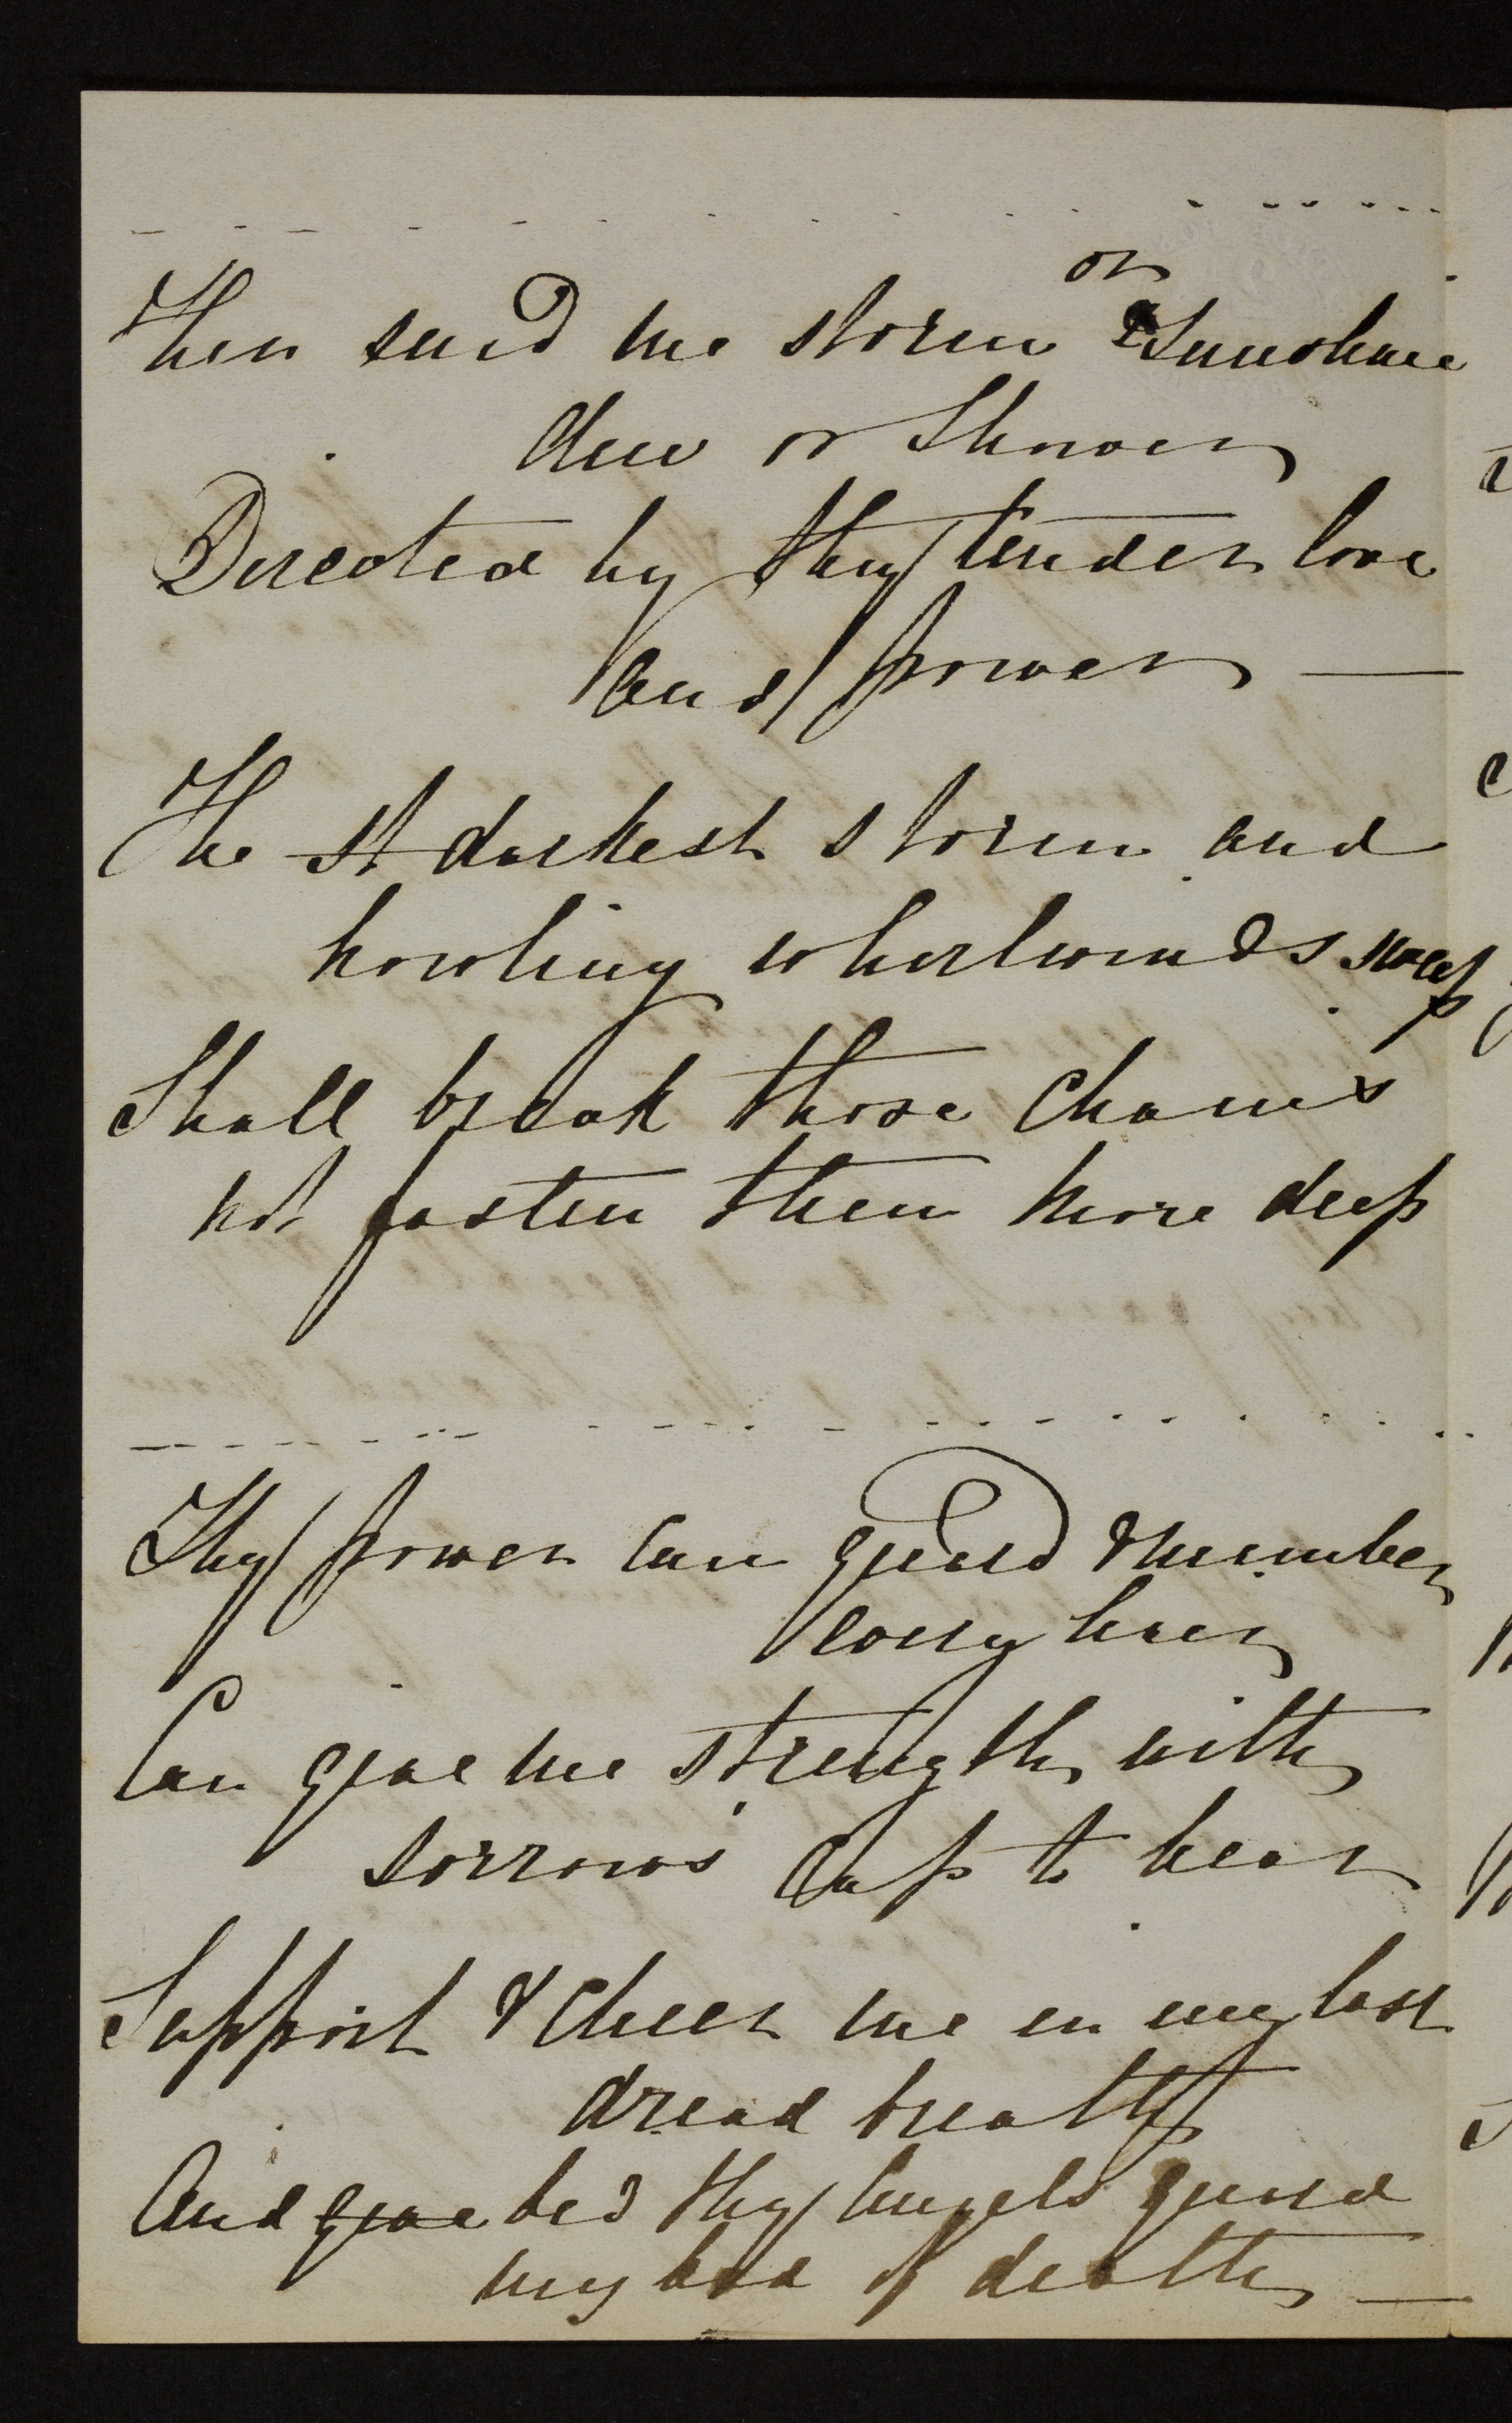 or
Then send me storm & Sunshine
dew or Shower
Directed by thy tender love
and power —
The st darkest storm and
howling whirlwinds sweep
Shall break those chains
not fasten them more deep
Thy power can guard & number
every hair
Can give me strength with
sorrows cup to bear
Support & cheer me in my last
dread breath
And give bid thy Angels guard
my bed of death —